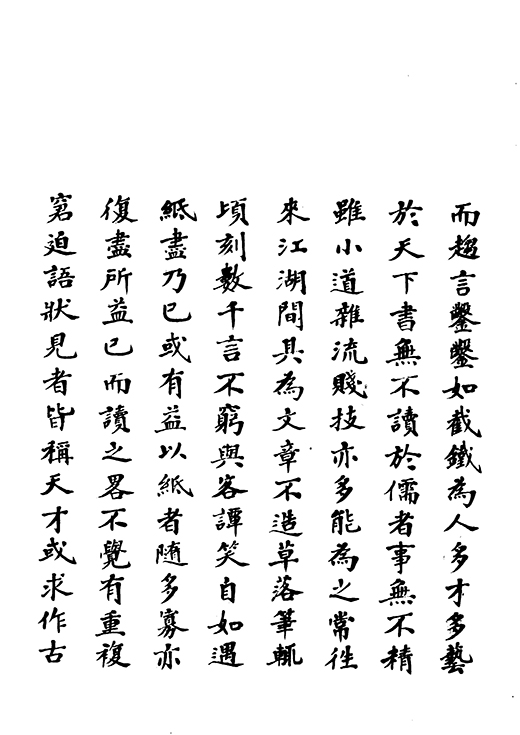 而趨言鑿鑿如截鐵為人多才多藝
於天下書無不讀於儒者事無不精
雖小道雜流賤技亦多能為之常徃
來江湖間具為文章不造草落筆輒
頃刻數千言不窮與客譚笑自如遇
紙盡乃已或有益以紙者随多寡亦
復盡所益已而讀之畧不覺有重複
窘迫語狀見者皆稱天才或求作古